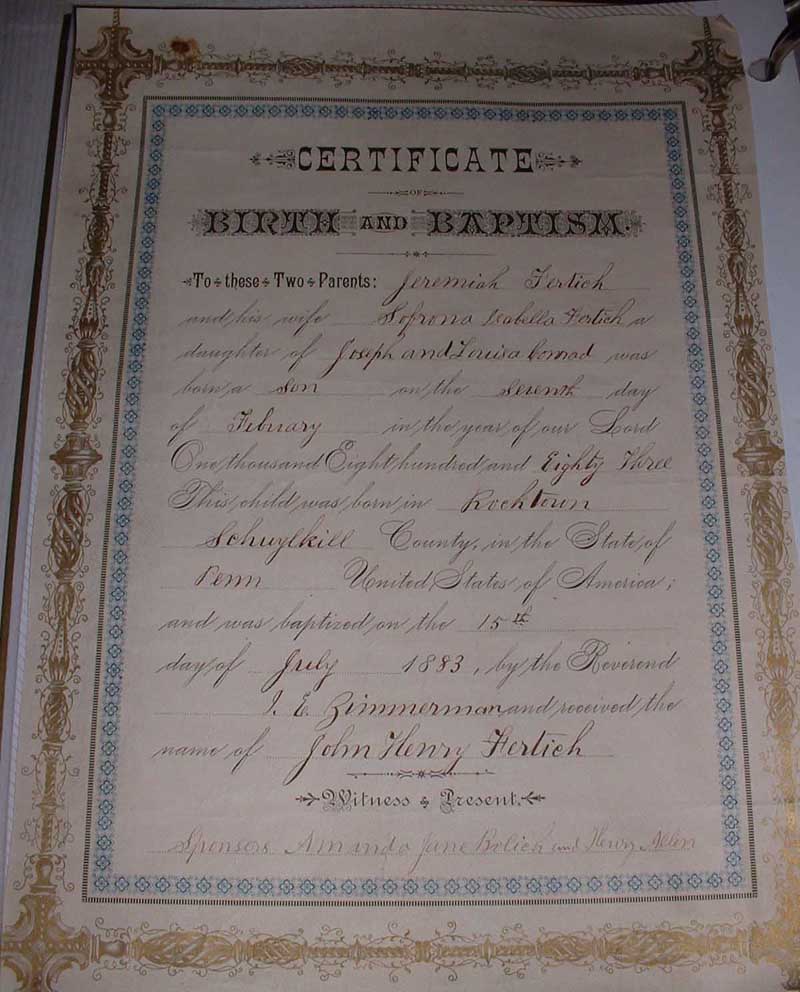 CERTIFICATE
OF
BIRTH AND BAPTISM.
To these Two Parents: Jeremiah Fertich
and his wife Sofrona Isabella Fertich a
daughter of Joseph and Louisa Conrad was
born a Son on the Seventh day
of Febuary in the year of our Lord
One thousand Eight hundred and Eighty Three
This child was born in Rocktown
Schuylkill County, in the State of
Penn United States of America;
and was baptized on the 15th
day of July 1883, by the Reverend
I. E. Zimmerman and received the
name of John Henry Fertich
Witness & Present.
Sponsors Amanda Jane Bolich and Henry Allen